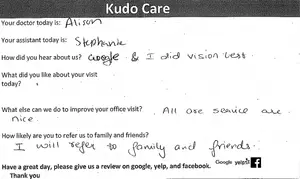 Kudo Care
Your doctor today is: Alison
Your assistant today is: Stephanie
How did you hear about us? Google & I did vision test
What did you like about your visit
today?
What else can we do to improve your office visit? All are service are
nice.
How likely are you to refer us to family and friends?
I will refer to family and friends.
Have a great day, please give us a review on google, yelp, and facebook. Google yelp f
Thank you